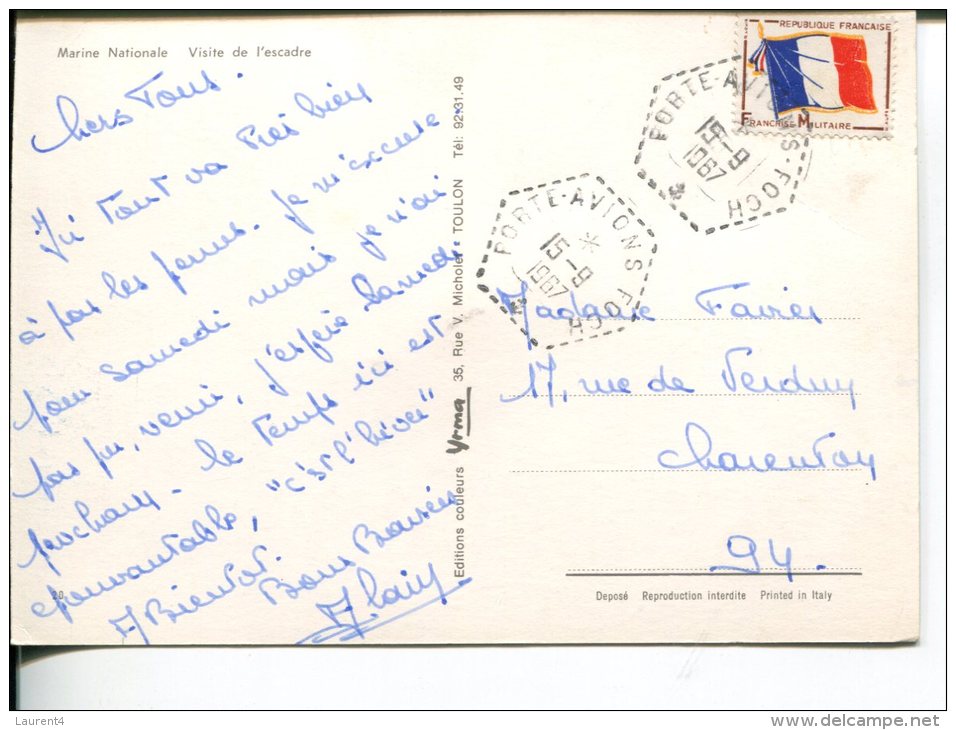 Marine Nationale Visite de l'escadre
Chers Tous.
Ici tout va très bien
à pas les pennes. Je m'excuse
pour samedi mais je n'ai
pas pu venir, j'espère Samedi
prochain - le temps ici est
épouvantable, "c'est l'hiver"
A Bientot.
Bons Baisers
Alain
20
Editions couleurs Yrma 35, Rue V. Micholet - TOULON Tél: 92.31.49
REPUBLIQUE FRANCAISE
FRANCHISE MILITAIRE
PORTE-AVIONS-FOCH
15-9
1967
PORTE-AVIONS FOCH
15-9
1967
Madame Favier
17, rue de Verdun
Charenton
94.
Deposé Reproduction interdite Printed in Italy
Laurent4
delcampe.net